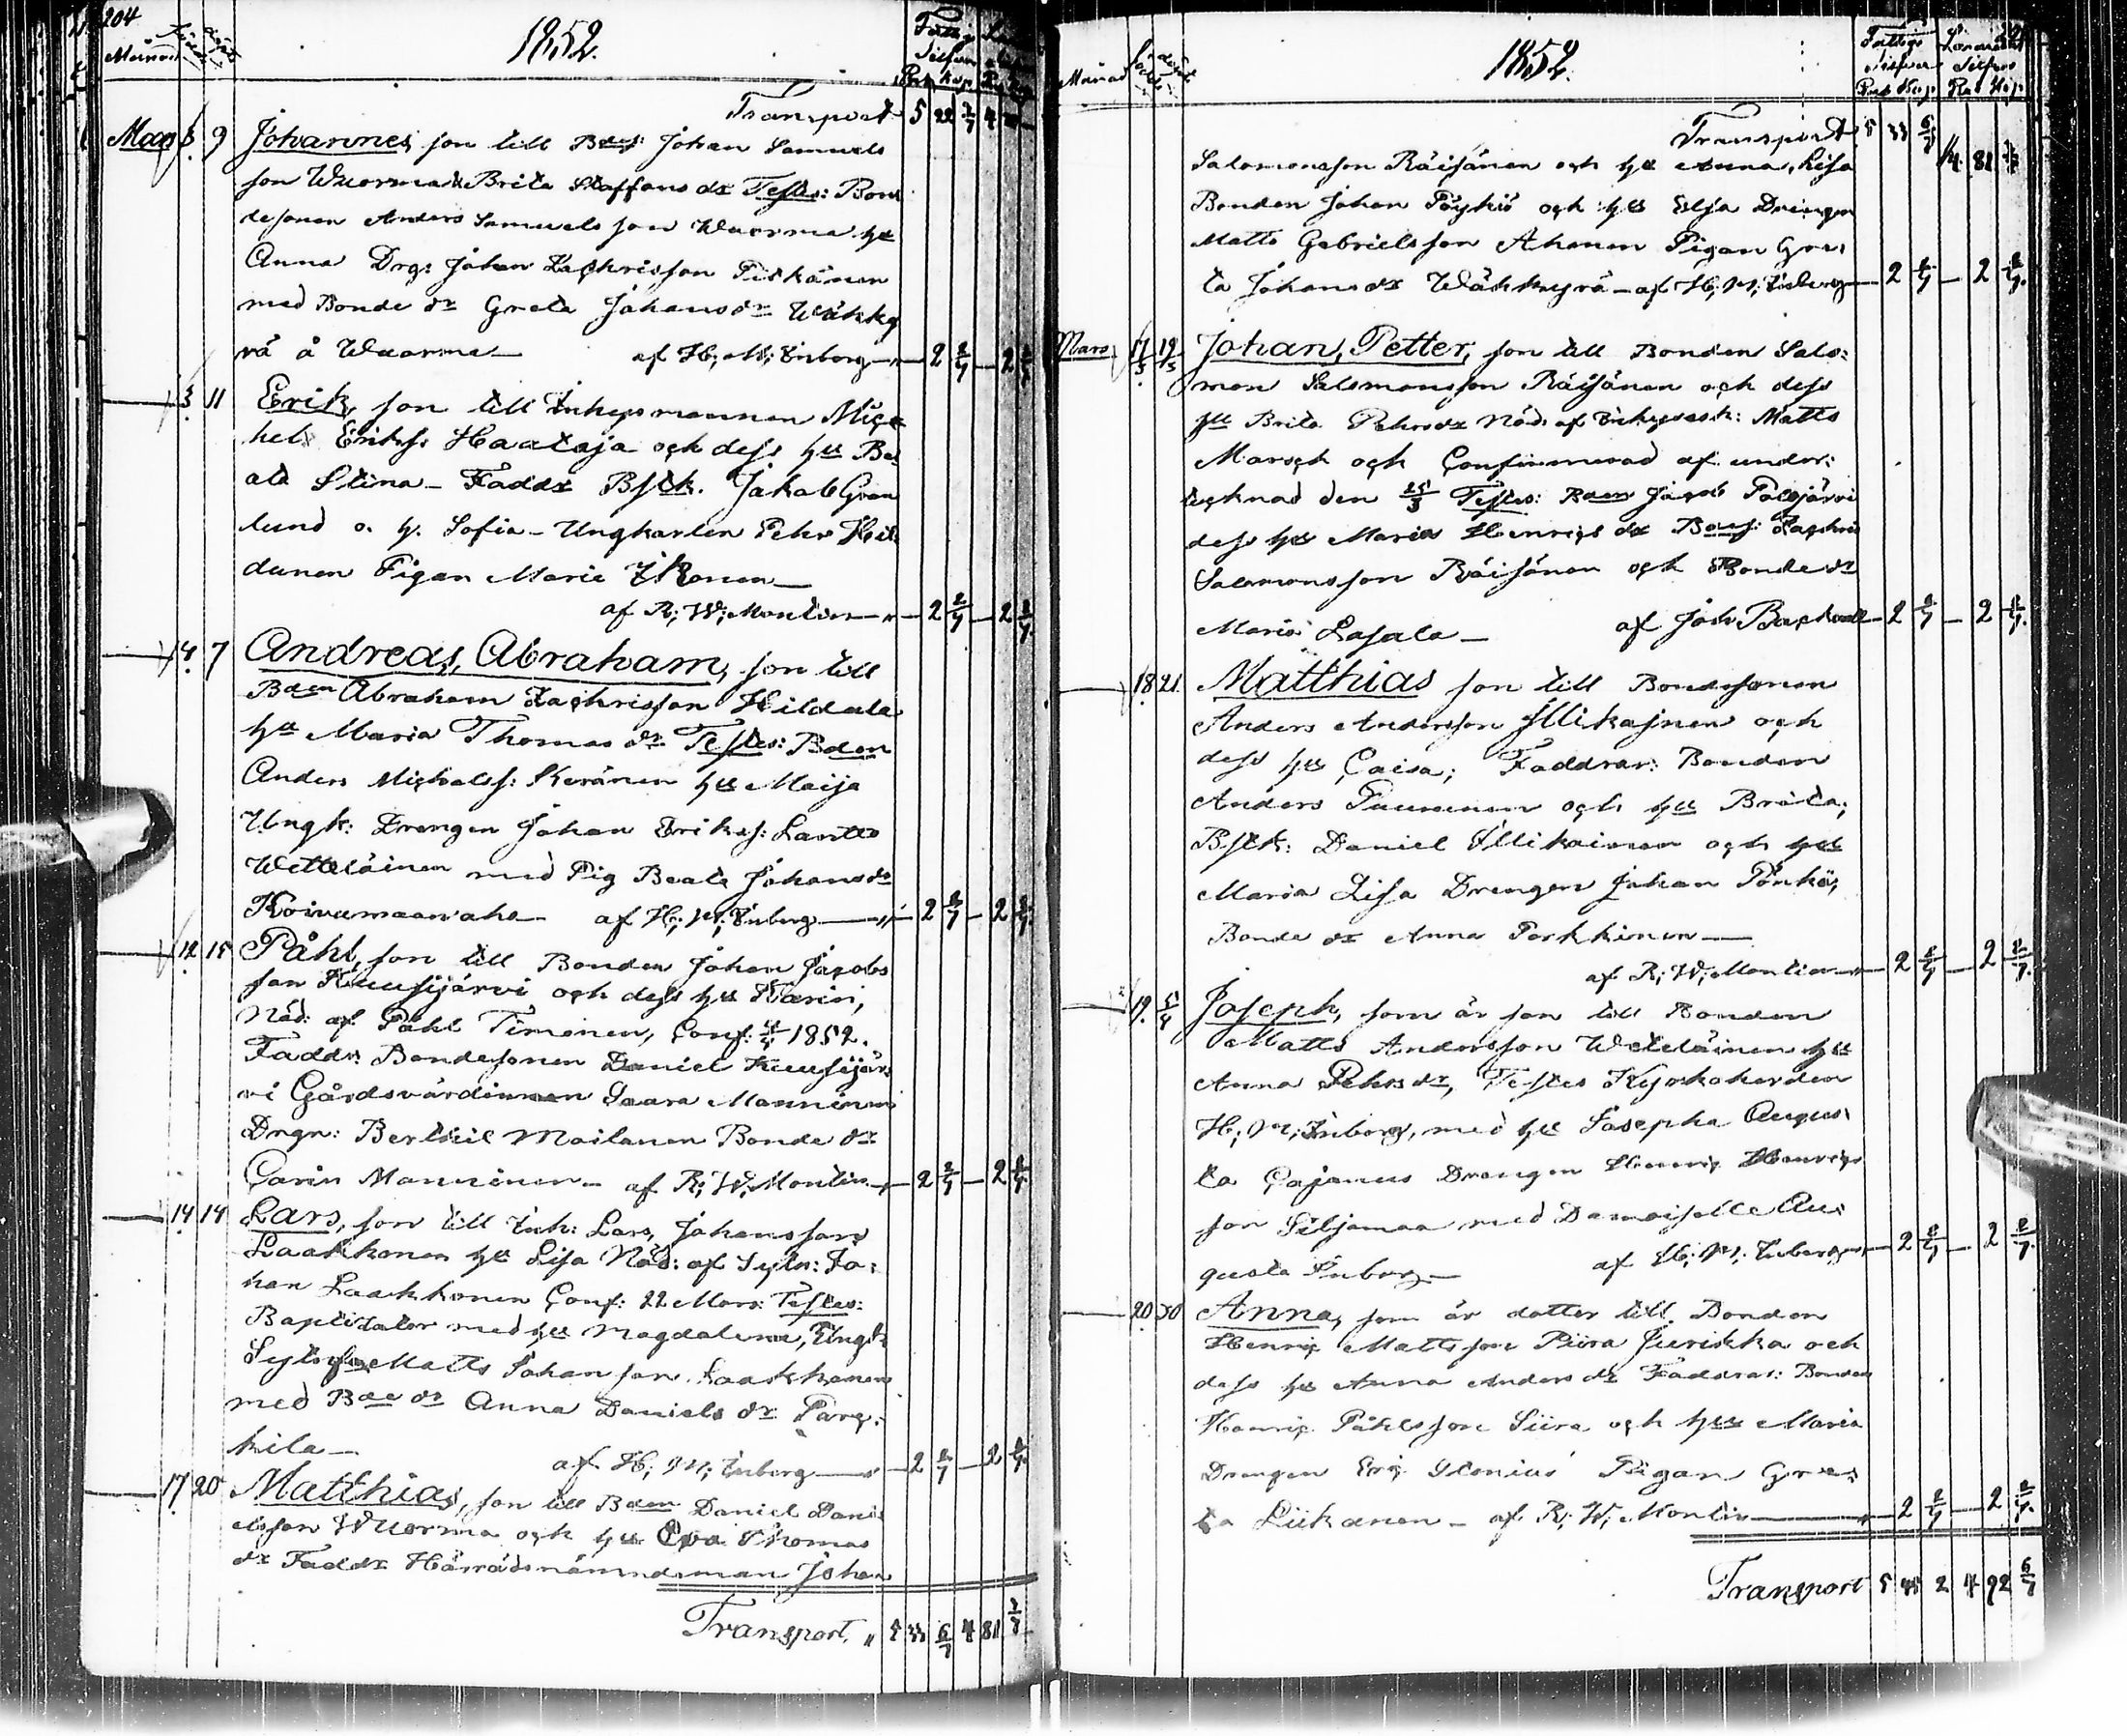 204
1852.
Månad
Transport 5 22 3/7 4
Mars 3. 9 Johannes, son till Bdes: Johan Samuels
son Wuorma & Brita Staffans dr Testes: Bon
desonen Anders Samuels son Wuorma hu
Anna Drg: Johan Zachrisson Piskånen
med Bonde dr Greta Johansdr Wäkky
rä å Wuorma — af H; M; Enborg — 2 2/7 — 2 2/7
3. 11 Erik, son till Inhysmannen Mic
hel Eriks: Haataja och dess hu Be
ata Stina — Faddr Bstk. Jakob Gran
lund o. h. Sofia — Ungkarlen Pehr Heik
dunen Pigan Maria
af R; W; Montin — 2 2/7 — 2 2/7
4. 7 Andreas, Abraham, son till
Bden Abraham Zachrisson Kildala
hu Maria Thomas dr Testes: Bden
Anders Michelss: Keränen hu Maija
Ungk: Drengen Johan Eriks: Lantto
Wetteläinen med Pig Beata Johansdr
Koivumaanaho — af H; M; Enborg — 2 2/7 — 2 2/7
12. 15 Påhl, son till Bonden Johan Jacobs
son Kuusijärvi och dess hu Karin,
Nöd: af Påhl Timonen, Conf: 1852.
Faddr: Bondesonen Daniel Kuusijär
vi Gårdsvärdinnan Saara Manninen
Drgn: Berthil Moilanen Bonde dr
Carin Manninen — af R; W; Montin — 2 2/7 — 2 2/7
14 14 Lars, son till Inh: Lars, Johansson
Laakkonen hu Lisa Nöd: af Sytn: Jo:
han Laakkonen Conf: 22 Mars: Testes:
Baptizator med hu Magdalena, Ung:
Sytn Matts Johansson Laakkonen
med Bde dr Anna Daniels dr
kila — af H; M; Enborg — 2 2/7 — 2 2/7
17. 20 Matthias, son till Bden Daniel Dani
elsson Wuorma och hu Eva Thomas
dr Faddr Häradsnämndeman Johan
Transport, „ 5 33 6/7 4 81 3/7
1852.
Månad
Fattigs Silfver Rub Kop. Silfver Rub Kop.
Transport 5 33 6/7 4. 81 3/7
Salomonsson Räisänen och hu Anna, Lisa
Bonden Johan Pöykiö och hu Elsa Drengen
Matts Gabrielsson Ahonen Pigan Gre:
ta Johansdr Wäkkyrä — af H; M; Enborg — 2 2/7 — 2 2/7.
Mars 17/3 19/3 Johan, Petter, son till Bonden Salo:
mon Salomonsson Räisänen och dess
hu Brita Pehrsdr Nöd: af Inhysesk: Matts
Marsch och Confirmerad af under:
tecknad den 25/3 Testes: Bden Jacob Palojärvi
dess hu Maria Henrics dr Boes: Zachris
Salomonsson Räisänen och Bonde dr
Maria Lasala — af Joh Backvall — 2 2/7 — 2 2/7.
18. 21. Matthias son till Bondesonen
Anders Andersson Illikajnen och
dess hu Caisa; Faddrar: Bonden
Anders Puurunen och hu Brita;
Bstk: Daniel Illikainen och hu
Maria Lisa Drengen Johan Pönkö;
Bonde dr Anna Parkkinen —
af R; W; Montin — 2 2/7 — 2 2/7.
19. 5/4 Joseph, som är son till Bonden
Matts Andersson Weteläinen hu
Anna Pehrsdr, Testes Kyrkoherden
H; M; Enborg, med hu Josepha Augus:
ta Cajanus Drengen Henric Henrics
son Siljamaa med Damoiselle Au:
gusta Enborg — af H; M; Enborg — 2 2/7 — 2 2/7.
20. 30 Anna, som är dotter till Bonden
Henric Mattsson Piira Jurikka och
dess hu Anna Anders dr Faddrar: Bonden
Henric Påhlsson Siira och hu Maria
Drengen Eric Pigan Gre:
ta Liikanen — af R; W; Montin — 2 2/7 — 2 2/7.
Transport 5 45 2 4 92 6/7